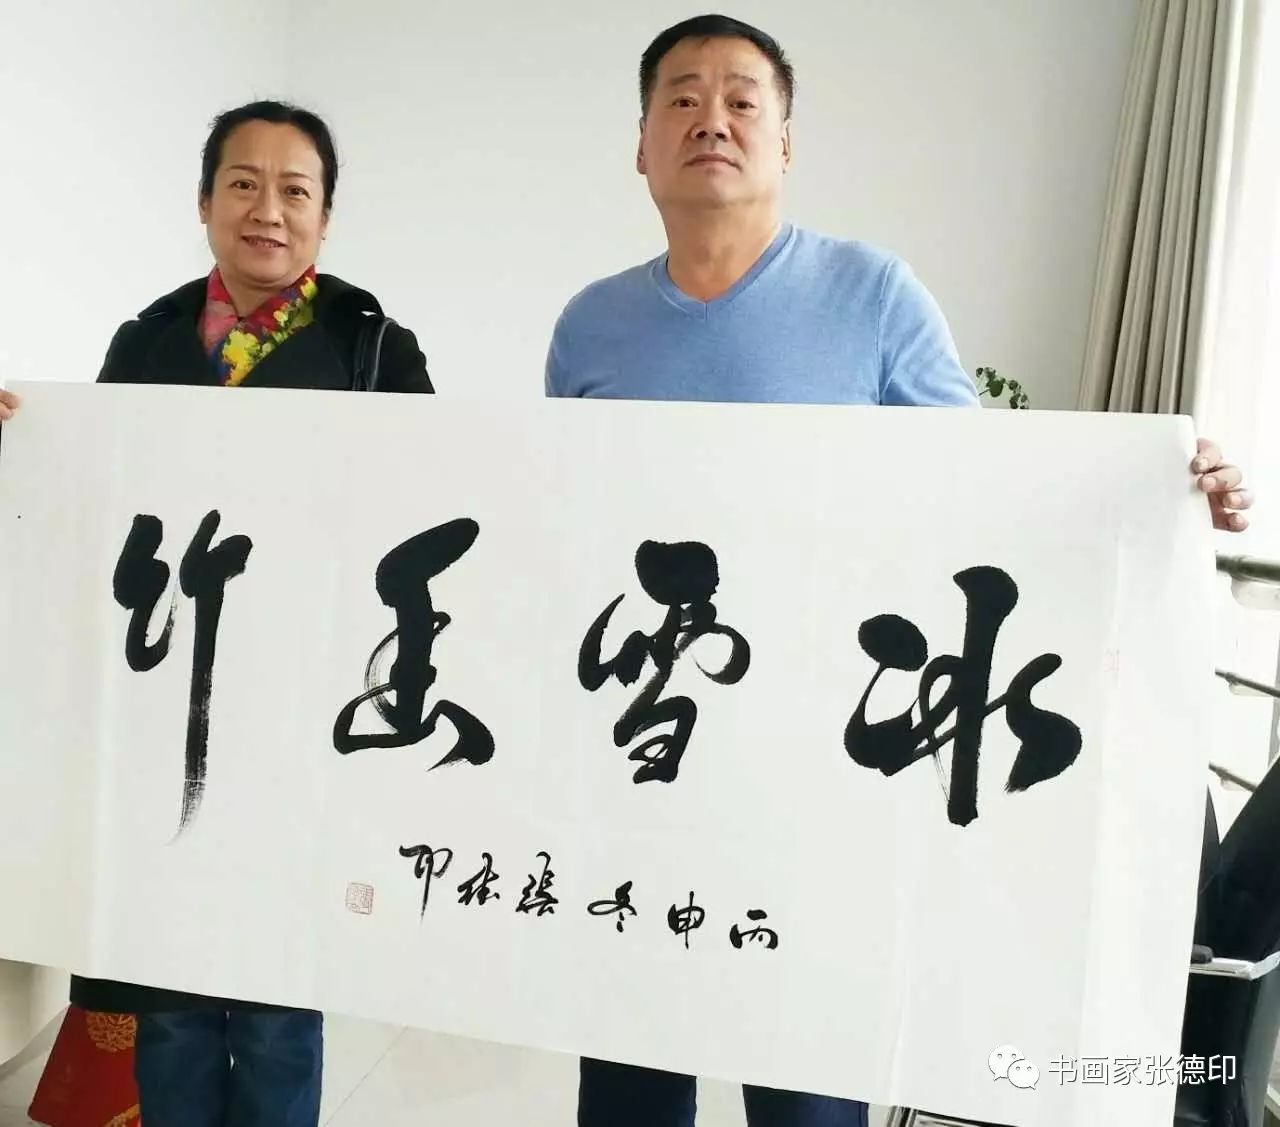 冰雪竹
丙申冬張德印
书画家张德印